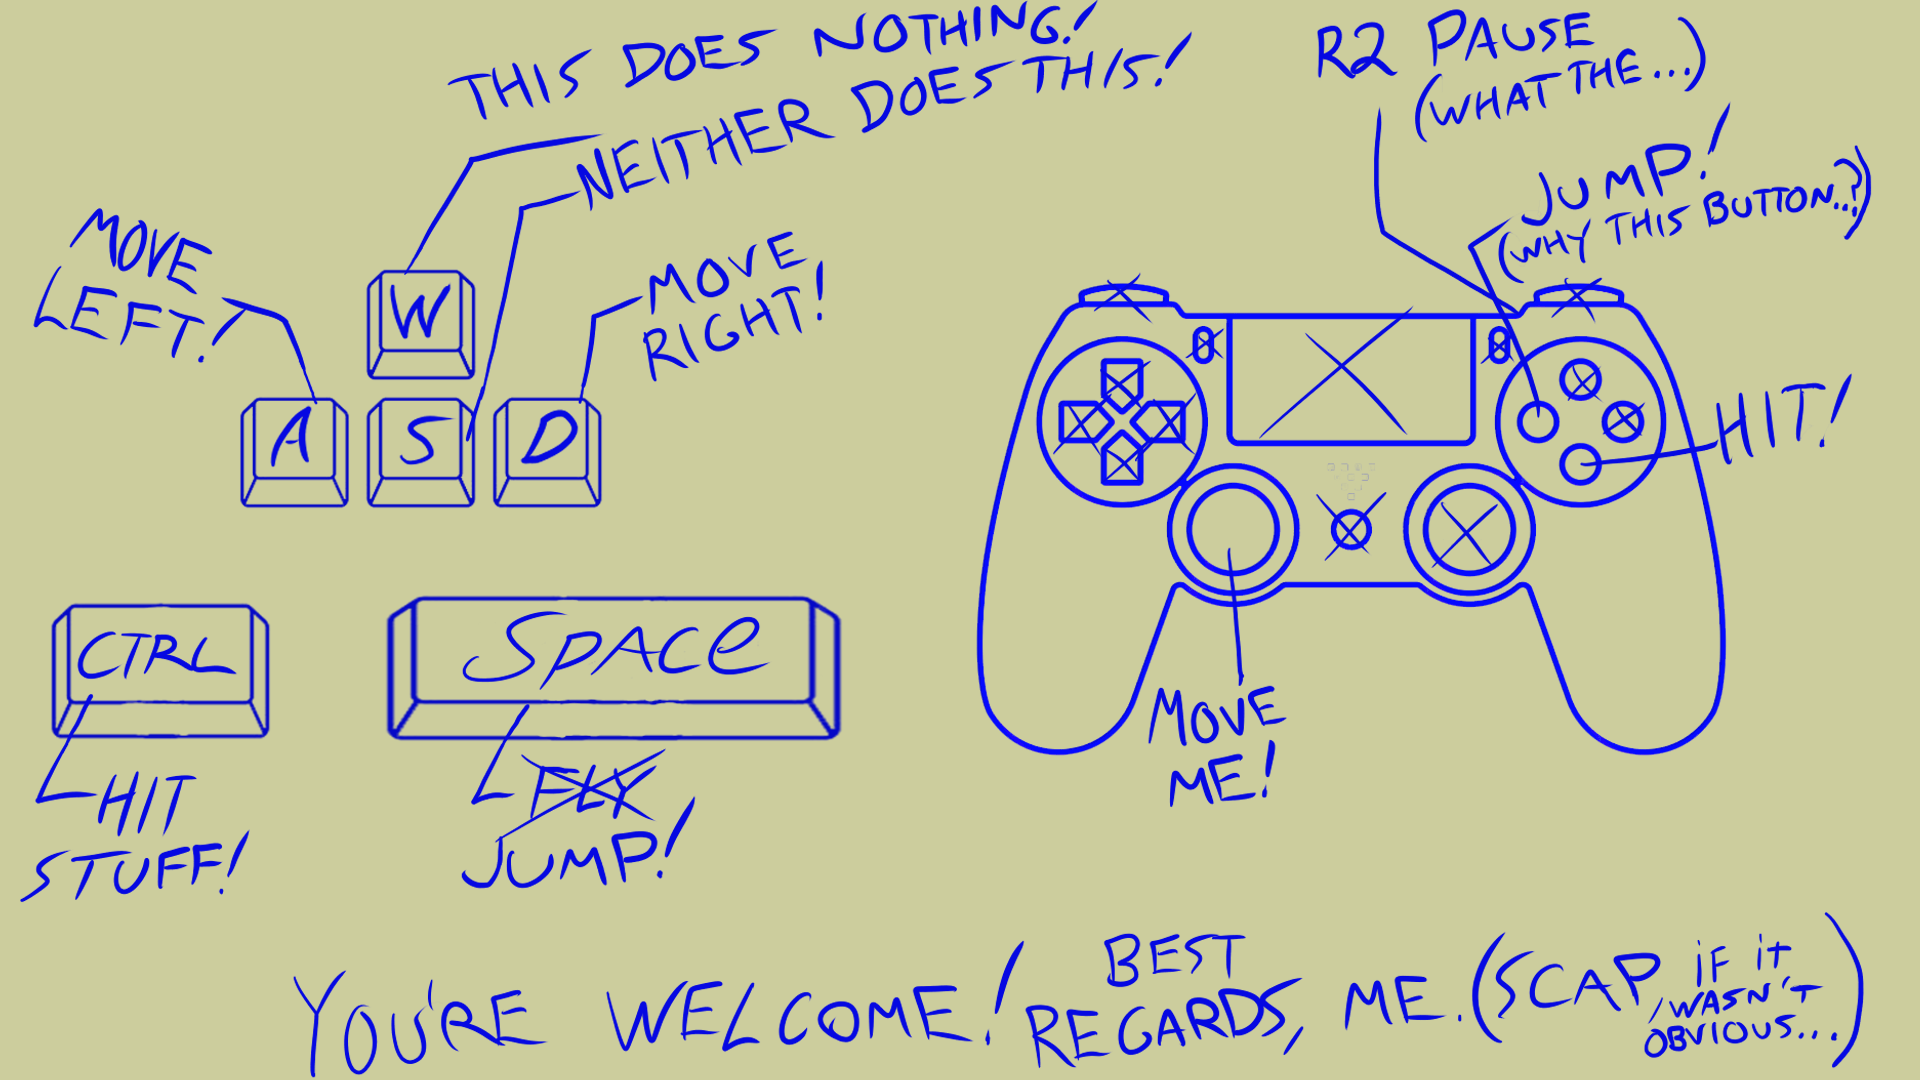 THIS DOES NOTHING!
NEITHER DOES THIS!
MOVE
LEFT!
MOVE
RIGHT!
W
A S D
CTRL
HIT
STUFF!
SPACE
FLY
JUMP!
R2 PAUSE
(WHAT THE...)
JUMP!
(WHY THIS BUTTON..!?)
HIT!
MOVE
ME!
YOU'RE WELCOME!
BEST
REGARDS, ME. (SCAP, IF IT
WASN'T
OBVIOUS...)